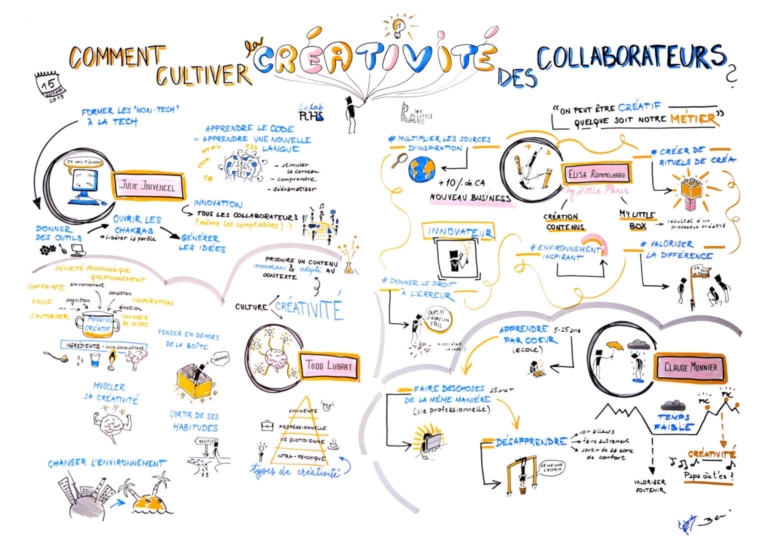 COMMENT
CULTIVER
la CRÉATIVITÉ
DES COLLABORATEURS ?
15
2019
Le Lab
RH
MY
LITTLE
PARIS
FORMER LES "NON-TECH"
À LA TECH
JULIE JOUVENCEL
DONNER
DES OUTILS
OUVRIR LES
CHAKRAS
+ libérer la parole
GÉNÉRER
LES IDÉES
APPRENDRE LE CODE
= APPRENDRE UNE NOUVELLE
LANGUE
HTML
CSS
- stimuler
le cerveau
- comprendre
- dédramatiser
INNOVATION
TOUS LES COLLABORATEURS
(même les comptables !)
"ON PEUT ÊTRE CRÉATIF
QUELQUE SOIT NOTRE MÉTIER"
# MULTIPLIER LES SOURCES
D'INSPIRATION
+10% de CA
NOUVEAU BUSINESS
INNOVATEUR
# DONNER LE DROIT
À L'ERREUR
FAIL
my little Paris
CRÉATION
CONTENUS
MY LITTLE
BOX
résultat d'un
processus créatif
# CRÉER DE
RITUELS DE CRÉA
# ENVIRONNEMENT
INSPIRANT
# VALORISER
LA DIFFÉRENCE
PRODUIRE UN CONTENU
nouveau & adapté AU
CONTEXTE
CULTURE / CRÉATIVITÉ
TODD LUBART
QUESTIONNEMENT
environnement
cognition
émotion
POTENTIEL
CRÉATIF
INGRÉDIENTS
MUSCLER
SA CRÉATIVITÉ
PENSER EN DEHORS
DE LA BOÎTE
SORTIR DE SES
HABITUDES
CHANGER L'ENVIRONNEMENT
EMINENTE
PROFESSIONNELLE
DE QUOTIDIENNE
INTRA-PSYCHIQUE
types de créativité
APPRENDRE
PAR COEUR
(école)
5-25 ans
FAIRE DES CHOSES
DE LA MÊME MANIÈRE
(vie professionnelle)
25 ans+
DÉSAPPRENDRE
voir ailleurs
faire autrement
sortir de sa zone
de confort
CLAUDE MONNIER
PIC
PIC
TEMPS
FAIBLE
VALORISER
SOUTENIR
CRÉATIVITÉ
Papa où t'es ?